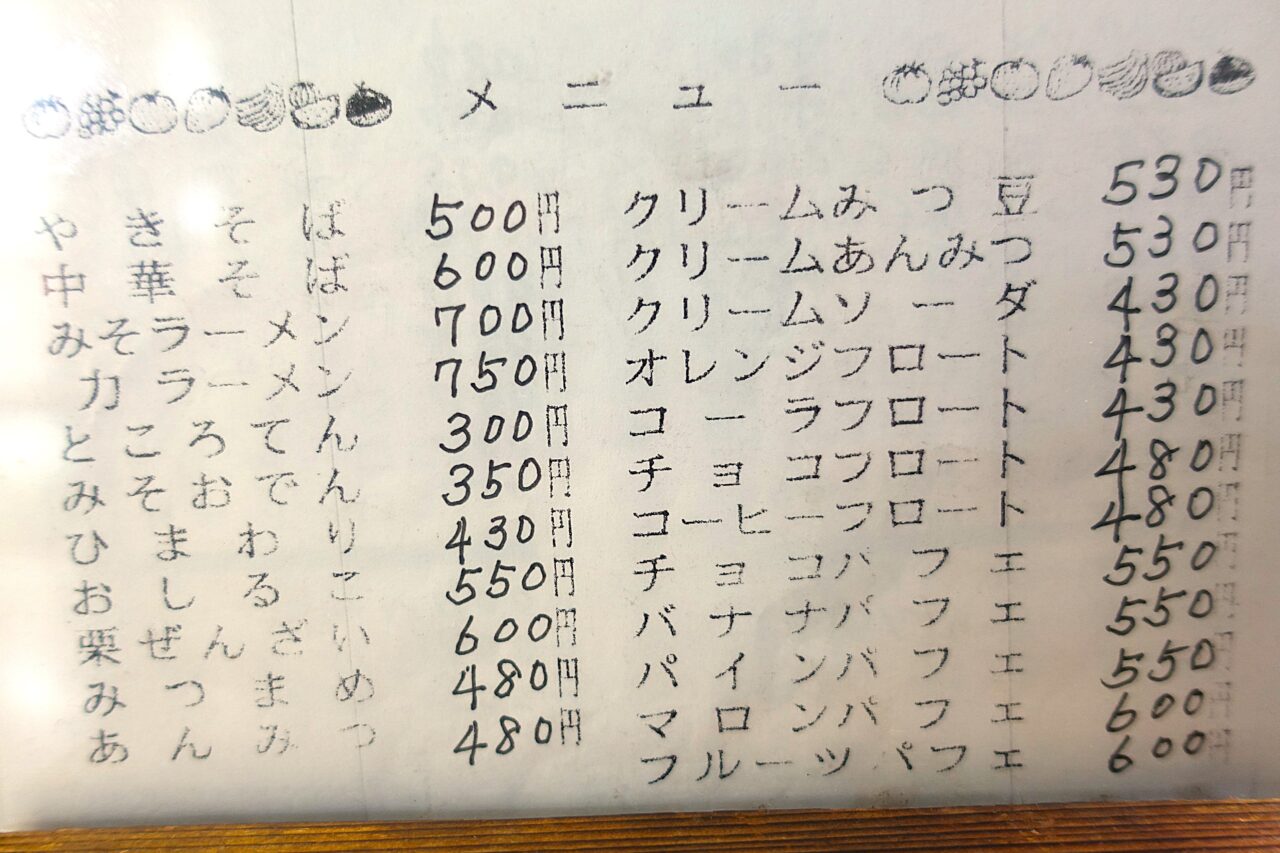 メニュー
やきそば 500円
中華そば 600円
みそラーメン 700円
力ラーメン 750円
ところてん 300円
みそおでん 350円
ひまわり 430円
おしるこ 550円
栗ぜんざい 600円
みつまめ 480円
あんみつ 480円
クリームみつ豆 530円
クリームあんみつ 530円
クリームソーダ 430円
オレンジフロート 430円
コーラフロート 430円
チョコフロート 480円
コーヒーフロート 480円
チョコパフェ 550円
バナナパフェ 550円
パインパフェ 550円
マロンパフェ 600円
フルーツパフェ 600円